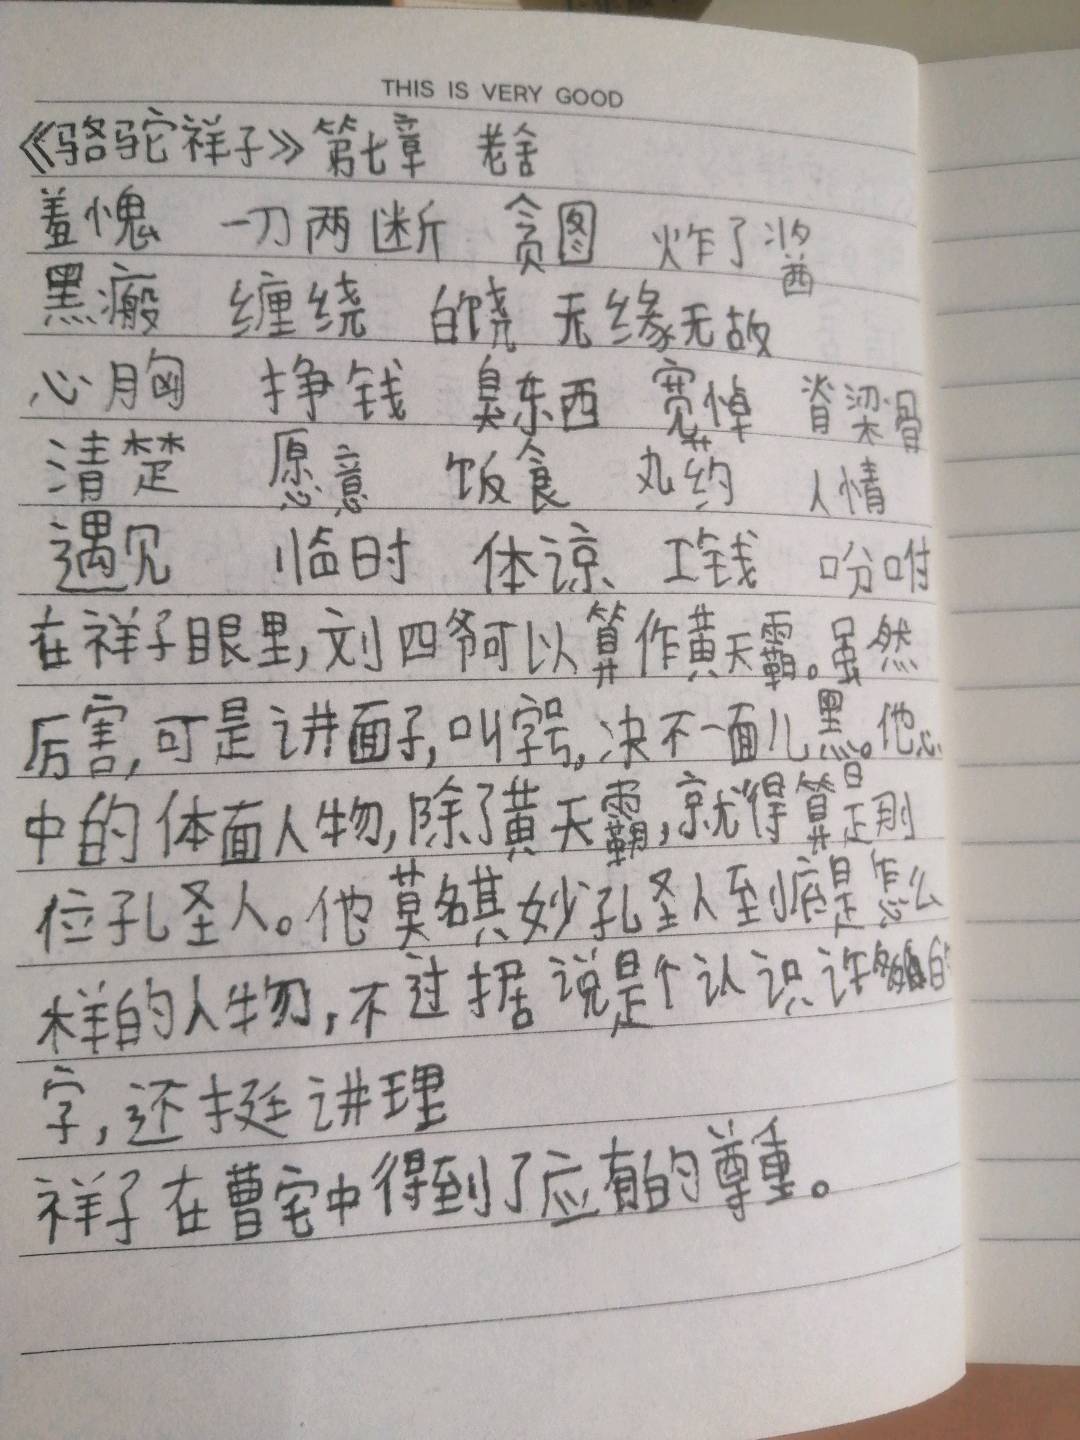 THIS IS VERY GOOD
《骆驼祥子》第七章 老舍
羞愧 一刀两断 贪图 炸了酱
黑瘢 缠绕 白饶 无缘无故
心胸 挣钱 臭东西 宽绰 脊梁骨
清楚 愿意 饭食 丸药 人情
遇见 临时 体谅 工钱 吩咐
在祥子眼里,刘四爷可以算作黄天霸。虽然
厉害,可是讲面子,叫字号,决不一面儿黑。他心
中的体面人物,除了黄天霸,就得算是那
位孔圣人。他莫名其妙孔圣人到底是怎么
样的人物,不过据说是个认识许多的
字,还挺讲理
祥子在曹宅中得到了应有的尊重。